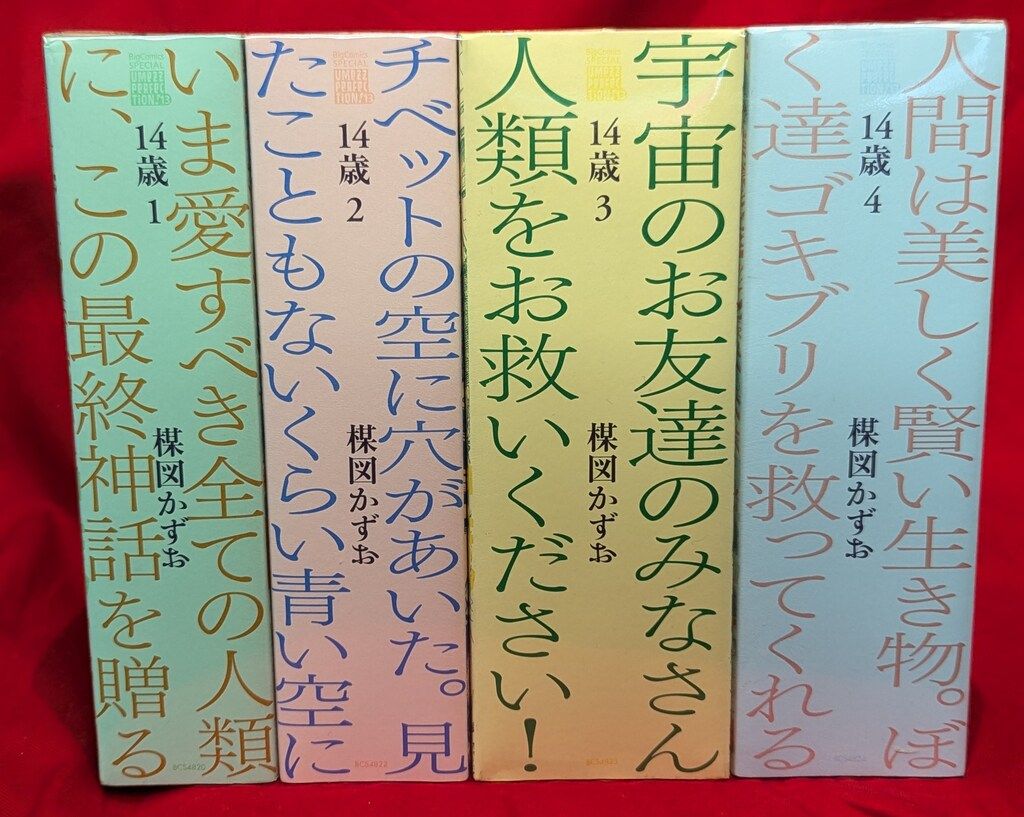 いま愛すべき全ての人類
に、この最終神話を贈る
BigComics
SPECIAL
UMEZZ
PERFEC
TION!13
14歳 1
楳図かずお
BCS4820
チベットの空に穴があいた。見
たこともないくらい青い空に
BigComics
SPECIAL
UMEZZ
PERFEC
TION!13
14歳 2
楳図かずお
BCS4822
宇宙のお友達のみなさん
人類をお救いください!
BigComics
SPECIAL
UMEZZ
PERFEC
TION!13
14歳 3
楳図かずお
BCS4823
人間は美しく賢い生き物。ぼ
く達ゴキブリを救ってくれる
14歳 4
楳図かずお